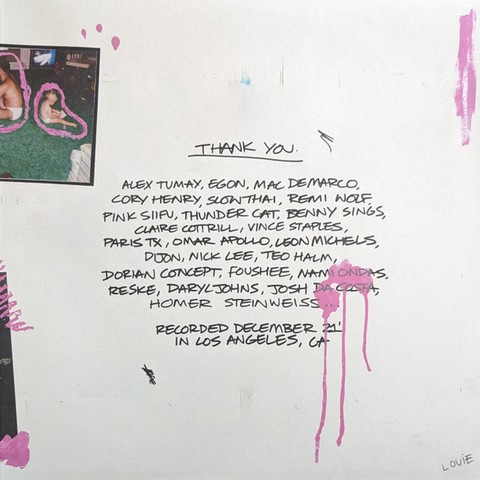 THANK YOU.
ALEX TUMAY, EGON, MAC DEMARCO,
CORY HENRY, SLOWTHAI, REMI WOLF
PINK SIIFU, THUNDER CAT, BENNY SINGS,
CLAIRE COTTRILL, VINCE STAPLES,
PARIS TX, OMAR APOLLO, LEON MICHELS,
DIJON, NICK LEE, TEO HALM,
DORIAN CONCEPT, FOUSHEE, NAMI ONDAS,
RESKE, DARYL JOHNS, JOSH DA COSTA,
HOMER STEINWEISS...
RECORDED DECEMBER 21'
IN LOS ANGELES, CA
LOUIE